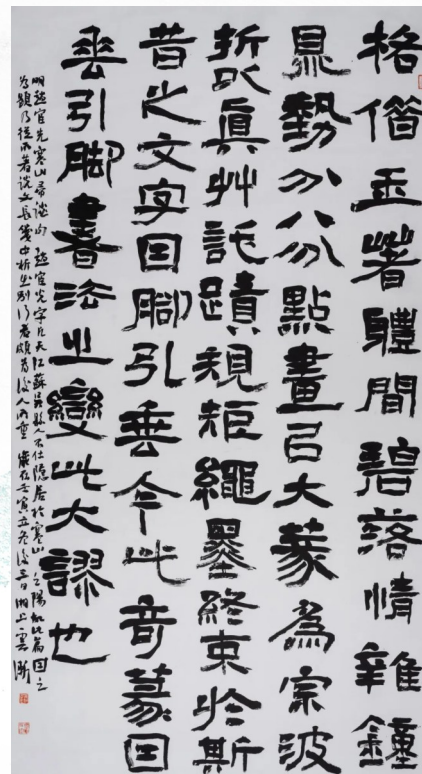 格借玉箸體間碧落情雜鍾
鼎勢分八分點畫㠯大篆為宗波
折㠯真艸託蹟規矩繩墨終束於斯
昔之文字因腳引垂今此奇篆因
垂引腳書法之變此大謬也
明趙宦光寒山帚談句 趙宦光字凡夫江蘇吳縣人不仕隱居於寒山之陽故此篇因之
為題乃從所著說文長箋中析出別行者頗為後人所重 歲在壬寅立冬後三日湘上雲